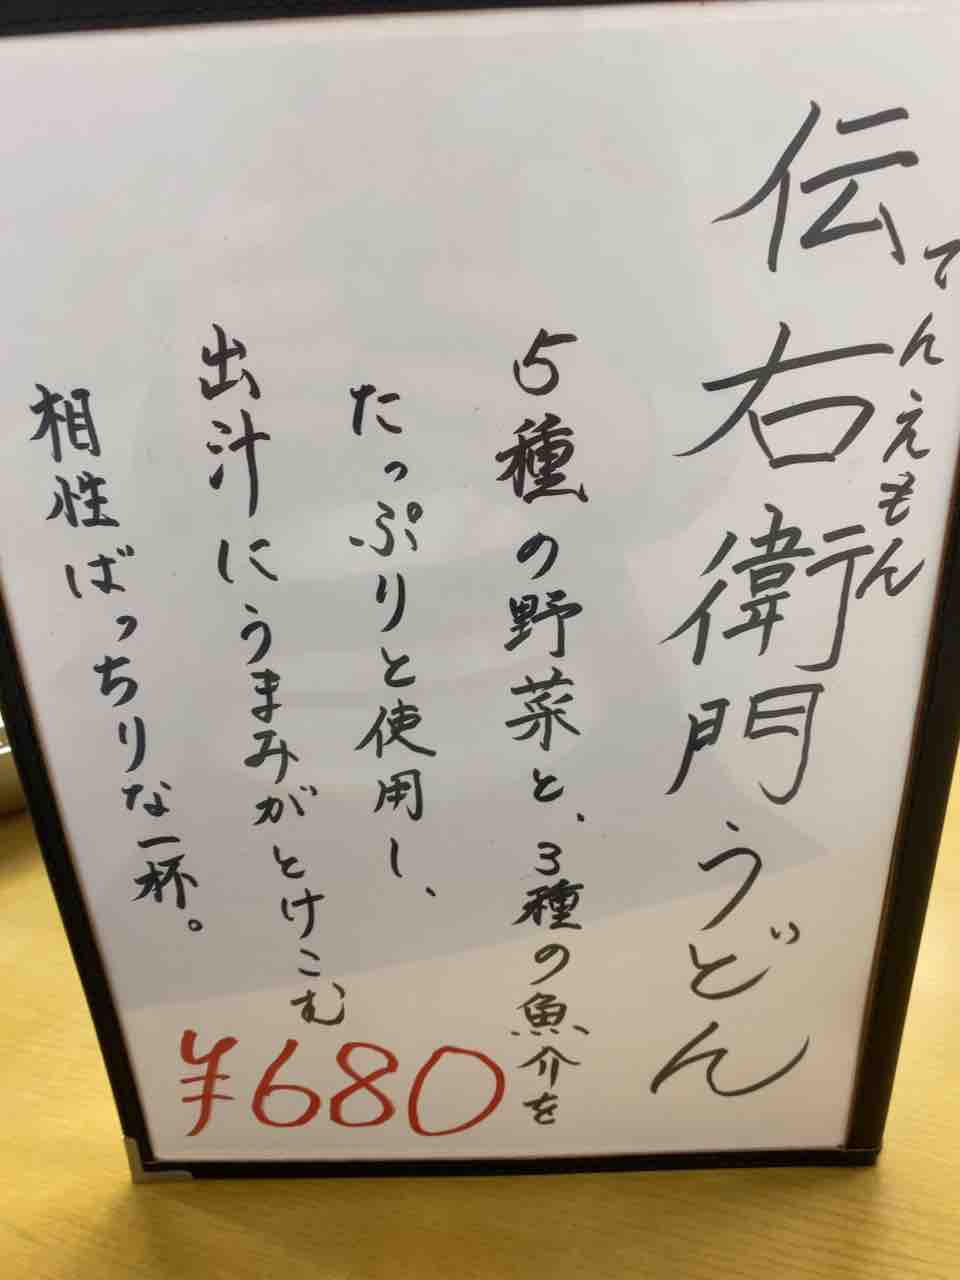 伝右衛門うどん
でんえもん
5種の野菜と、3種の魚介を
たっぷりと使用し、
出汁にうまみがとけこむ
相性ばっちりな一杯。
¥680